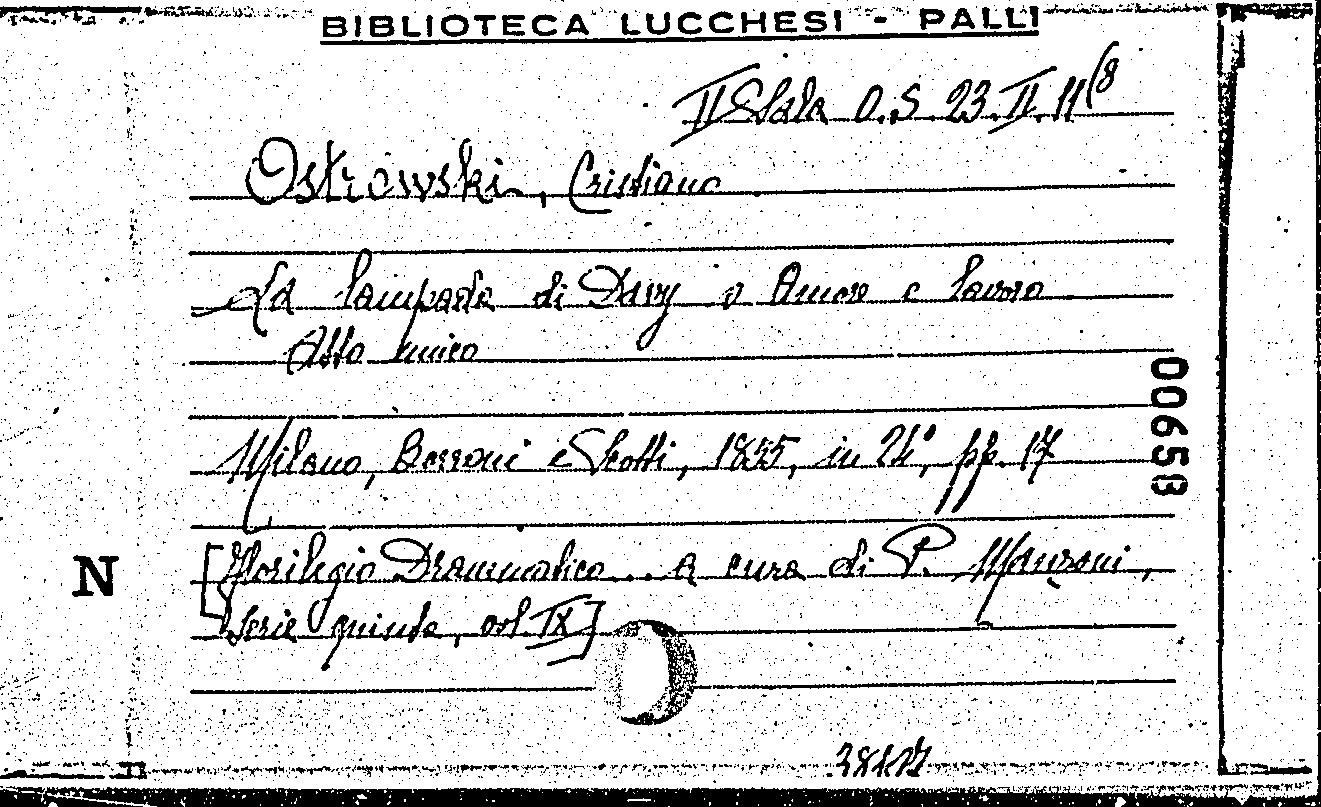 BIBLIOTECA LUCCHESI - PALLI
II Sala O.S. 23.II.11(8
Ostrowski, Cristiano
La lampada di Davy o Amore e lavoro
Atto unico
Milano, Borroni e Scotti, 1855, in 24°, pp. 17
[Florilegio Drammatico... a cura di P. Manzoni,
serie quinta, vol. IX]
00658
N